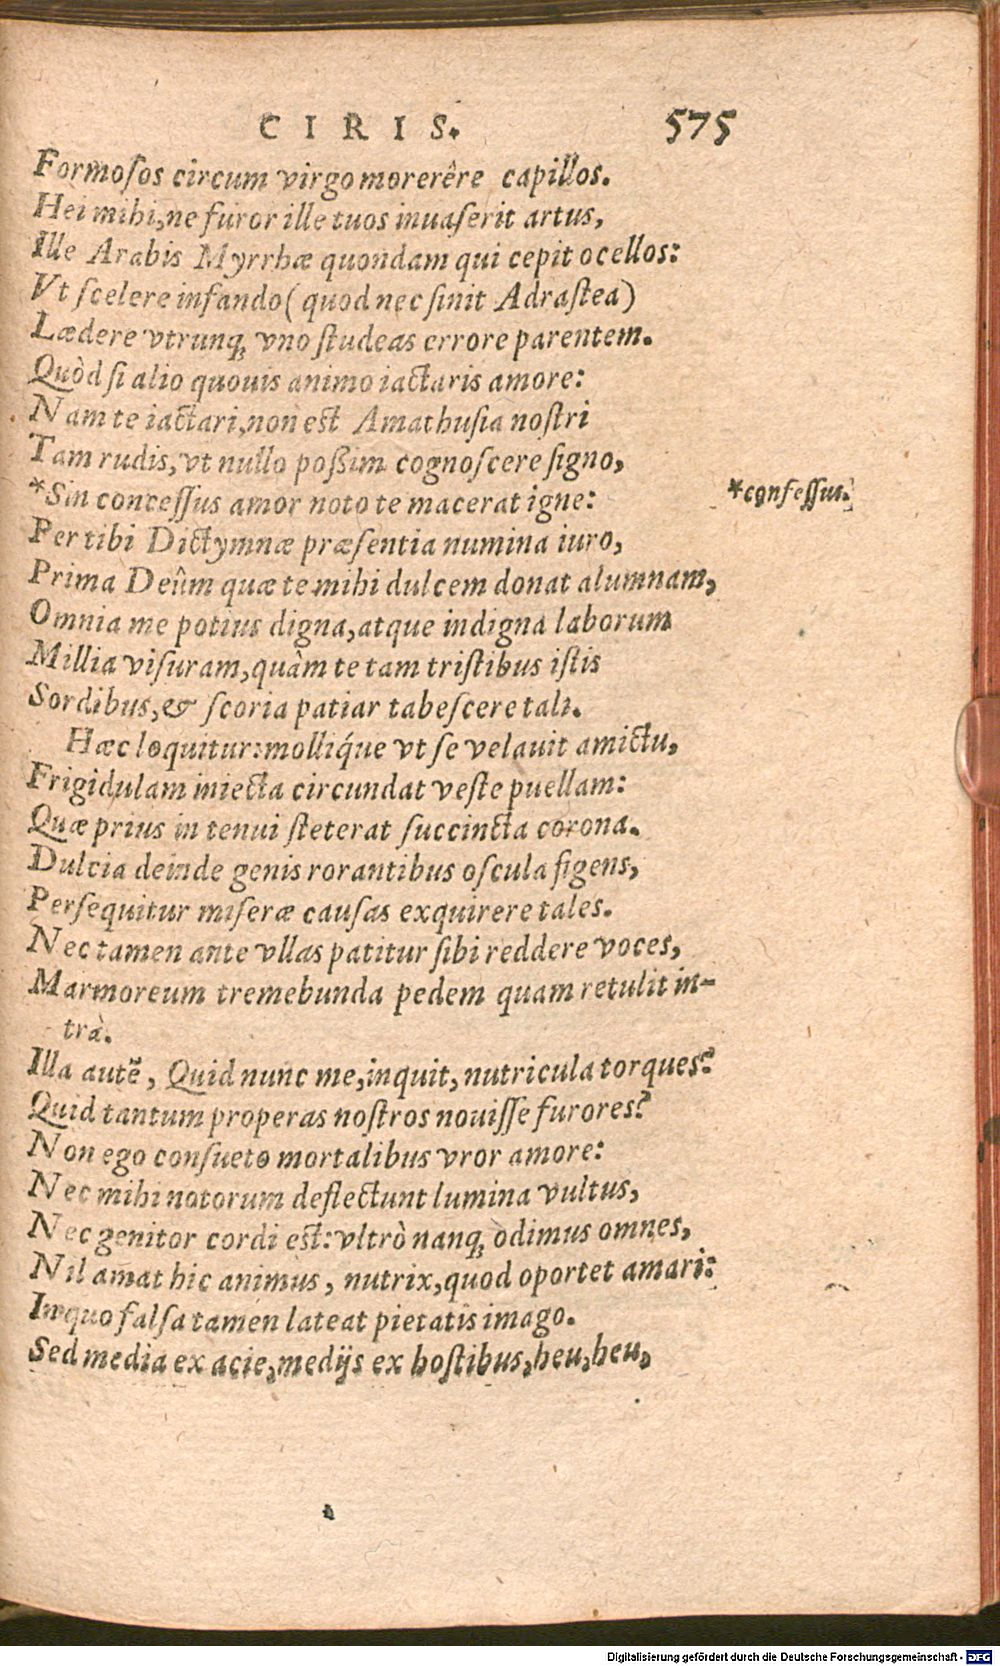 CIRIS. 575
Formoſos circum virgo morerêre capillos.
Hei mihi, ne furor ille tuos inuaſerit artus,
Ille Arabis Myrrhæ quondam qui cepit ocellos:
Vt ſcelere infando (quod nec ſinit Adraſtea)
Lædere vtrunq; vno ſtudeas errore parentem.
Quòd ſi alio quouis animo iactaris amore:
Nam te iactari, non est Amathuſia noſtri
Tam rudis, vt nullo poßim cognoſcere ſigno,
*Sin conceſſus amor noto te macerat igne: *confeſſus.
Per tibi Dictymnæ præſentia numina iuro,
Prima Deûm quæ te mihi dulcem donat alumnam,
Omnia me potius digna, atque indigna laborum
Millia viſuram, quàm te tam triſtibus iſtis
Sordibus, & ſcoria patiar tabeſcere tali.
Hæc loquitur: molliq́ue vt ſe velauit amictu,
Frigidulam iniecta circundat veſte puellam:
Quæ prius in tenui ſteterat ſuccincta corona.
Dulcia deinde genis rorantibus oſcula figens,
Perſequitur miſeræ cauſas exquirere tales.
Nec tamen ante vllas patitur ſibi reddere voces,
Marmoreum tremebunda pedem quam retulit in-
trà.
Illa autẽ, Quid nunc me, inquit, nutricula torques?
Quid tantum properas noſtros nouiſſe furores?
Non ego conſueto mortalibus vror amore:
Nec mihi notorum deflectunt lumina vultus,
Nec genitor cordi est: vltrò nanq; òdimus omnes,
Nil amat hic animus, nutrix, quod oportet amari:
In quo falſa tamen lateat pietatis imago.
Sed media ex acie, medijs ex hoſtibus, heu, heu,
Digitalisierung gefördert durch die Deutsche Forschungsgemeinschaft - DFG